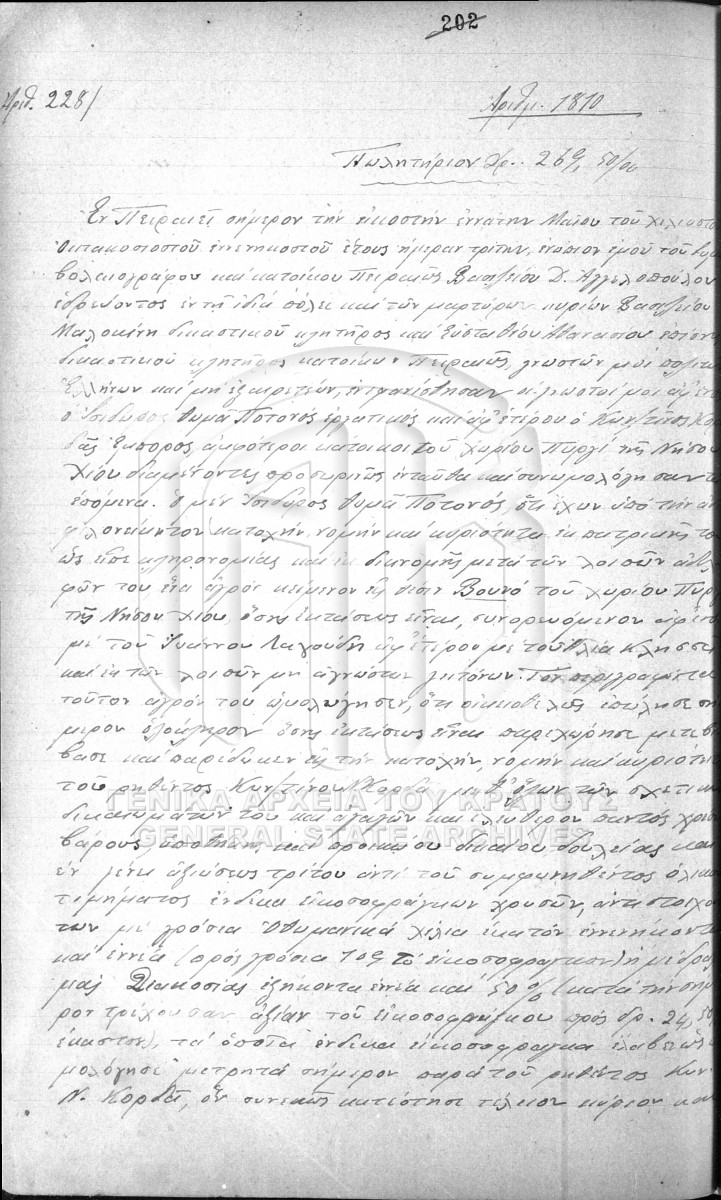 202
Αριθ. 228/
Αριθμ. 1810
Πωλητήριον Δρ. 269, 50/00
Εν Πειραιεί σήμερον την εικοστήν εννάτην Μαΐου του χιλιοστού
οκτακοσιοστού εννενηκοστού έτους ημέραν τρίτην, ενώπιον εμού του συμ
βολαιογράφου και κατοίκου Πειραιώς Βασιλείου Δ. Αγγελοπούλου
εδρεύοντος εν τη ιδία πόλει και των μαρτύρων κυρίων Βασιλείου
δικαστικού κλητήρος και Ευσταθίου Αθανασίου επίσης
δικαστικού κλητήρος κατοίκων Πειραιώς, γνωστών μοι πολιτών
Ελλήνων και μη εξαιρετέων, ενεφανίσθησαν οι γνωστοί μοι αφ' ενός
ο Ισίδωρος Θωμά Ποτονός εργατικός και αφ' ετέρου ο Κων/τίνος Κορ
δάς έμπορος, αμφότεροι κάτοικοι του χωρίου Πυργί της Νήσου
Χίου διαμένοντες προσωρινώς ενταύθα και συνωμολόγησαν τα
επόμενα. Ο μεν Ισίδωρος Θωμά Ποτονός, ότι έχων υπό την αν
φιλονείκητον κατοχήν, νομήν και κυριότητα εκ πατρικής του
ως είπε κληρονομίας και εκ διανομής μετά των λοιπών αδελ
φών του ένα αγρόν κείμενον εις θέσιν Βουνό του χωρίου Πυργί
της Νήσου Χίου, όσης εκτάσεως είναι, συνορευόμενον αφ' ενός
με του Ιωάννου Λαγούδη αφ' ετέρου με του Ηλία
και εκ των λοιπών μη αγνώστων γειτόνων. Τον περιγραφέντα
τούτον αγρόν του ωμολόγησεν, ότι οικιοθελώς επώλησε σή
μερον ολόκληρον όσης εκτάσεως είναι παρεχώρησε μετεβί
βασε και παρέδωκεν εις την κατοχήν, νομήν και κυριότητα
του ρηθέντος Κων/τίνου Ν. Κορδά μεθ' όλων των σχετικών
δικαιωμάτων του και αγωγών και ελεύθερον παντός χρέους
βάρους υποθήκης και προικώου δικαίου δουλείας και
εν γένει αξιώσεως τρίτου αντί του συμφωνηθέντος ολικού
τιμήματος ένδεκα εικοσοφράγκων χρυσών, αντιστοιχούν
των με γρόσια Οθωμανικά χίλια εκατόν εννενήκοντα
και εννέα (προς γρόσια 109 το εικοσόφραγκον) ή με δραχ
μάς Διακοσίας εξήκοντα εννέα και 50% (κατά την σήμε
ρον τρέχουσαν αξίαν του εικοσοφράγκου προς δρ. 24,50
έκαστον), τα οποία ένδεκα εικοσόφραγκα έλαβεν ως ω
μολόγησε μετρητά σήμερον παρά του ρηθέντος Κων.
Ν. Κορδά, όν συνεπώς κατέστησε τέλειον κύριον και
ΓΕΝΙΚΑ ΑΡΧΕΙΑ ΤΟΥ ΚΡΑΤΟΥΣ
GENERAL STATE ARCHIVES